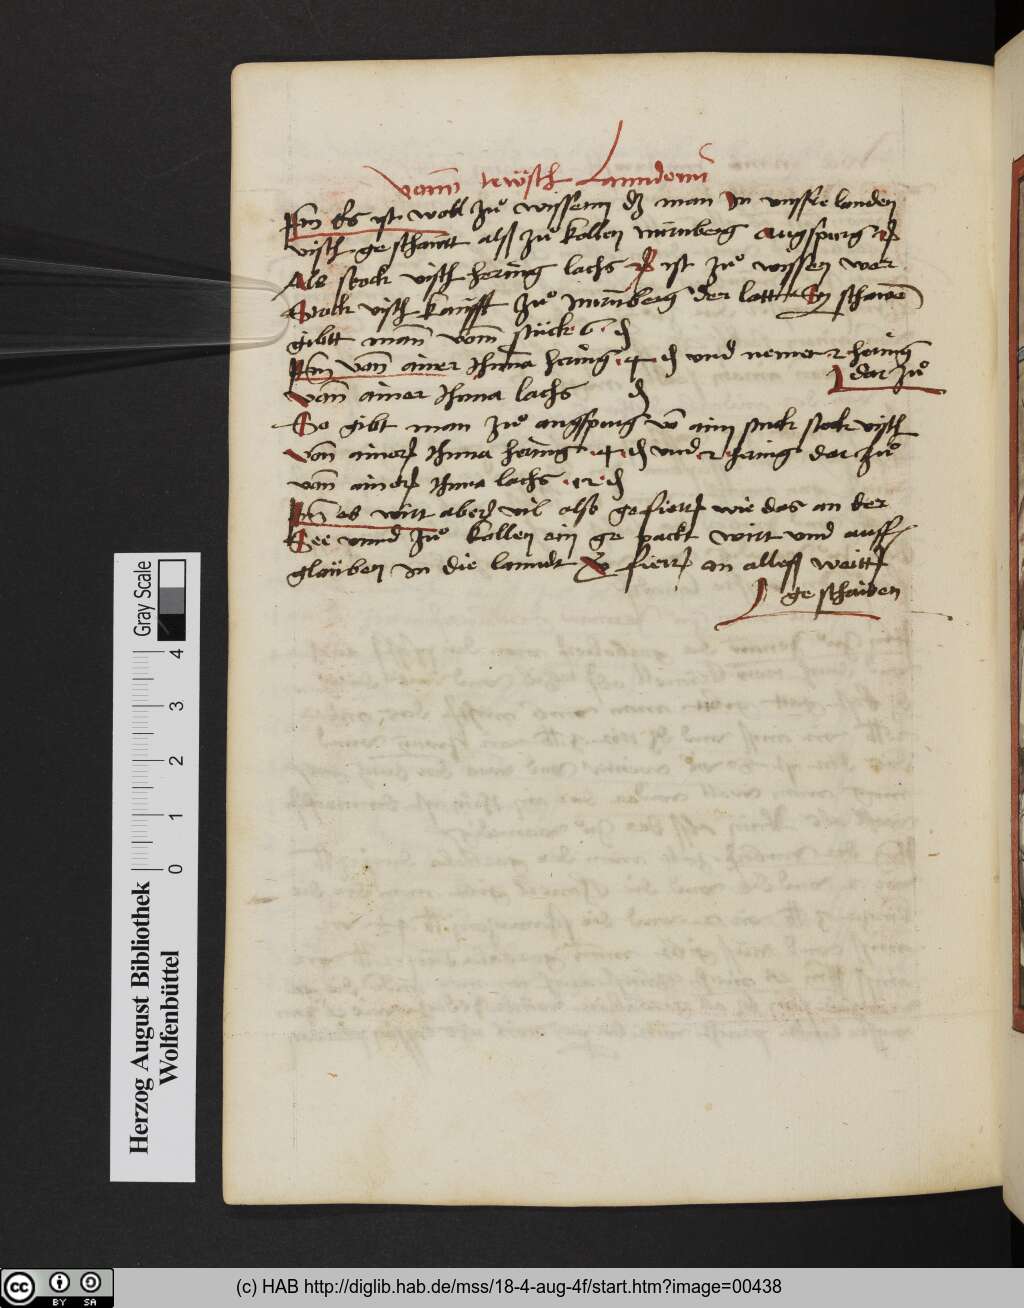 vonn tewtsch Lanndenn
Itm Es ist woll zuͦ wyssenn dz man In unsserlanden
visch geschawtt alß zuͦ kollen nurnberg augspurg
Als stock visch hering lachs ist zuͦ wyssen wer
Stock visch kaufft zuͦ nurmberg der latt In schawen
gibtt mann vom stuck 6 d
Itm vonn ainer thunna hering 4 d und nemer 2 hering
dar zuͦ
vonn ainer thunna lachs d
So gibt man zuͦ augspurg von aim stuck stock visch
von ainer thunna hering 4 d und 2 hering dar zuͦ
von ainer thunna lachs 12 d
Itm es wirt aber vil also gefiert wie das an der
See unnd zuͦ kollen ein ge packt wirt und auff
glauben In die lanndt fiert an alleß weitter
ge schaiden
Gray Scale
0 1 2 3 4
Herzog August Bibliothek
Wolfenbüttel
cc BY SA
(c) HAB http://diglib.hab.de/mss/18-4-aug-4f/start.htm?image=00438